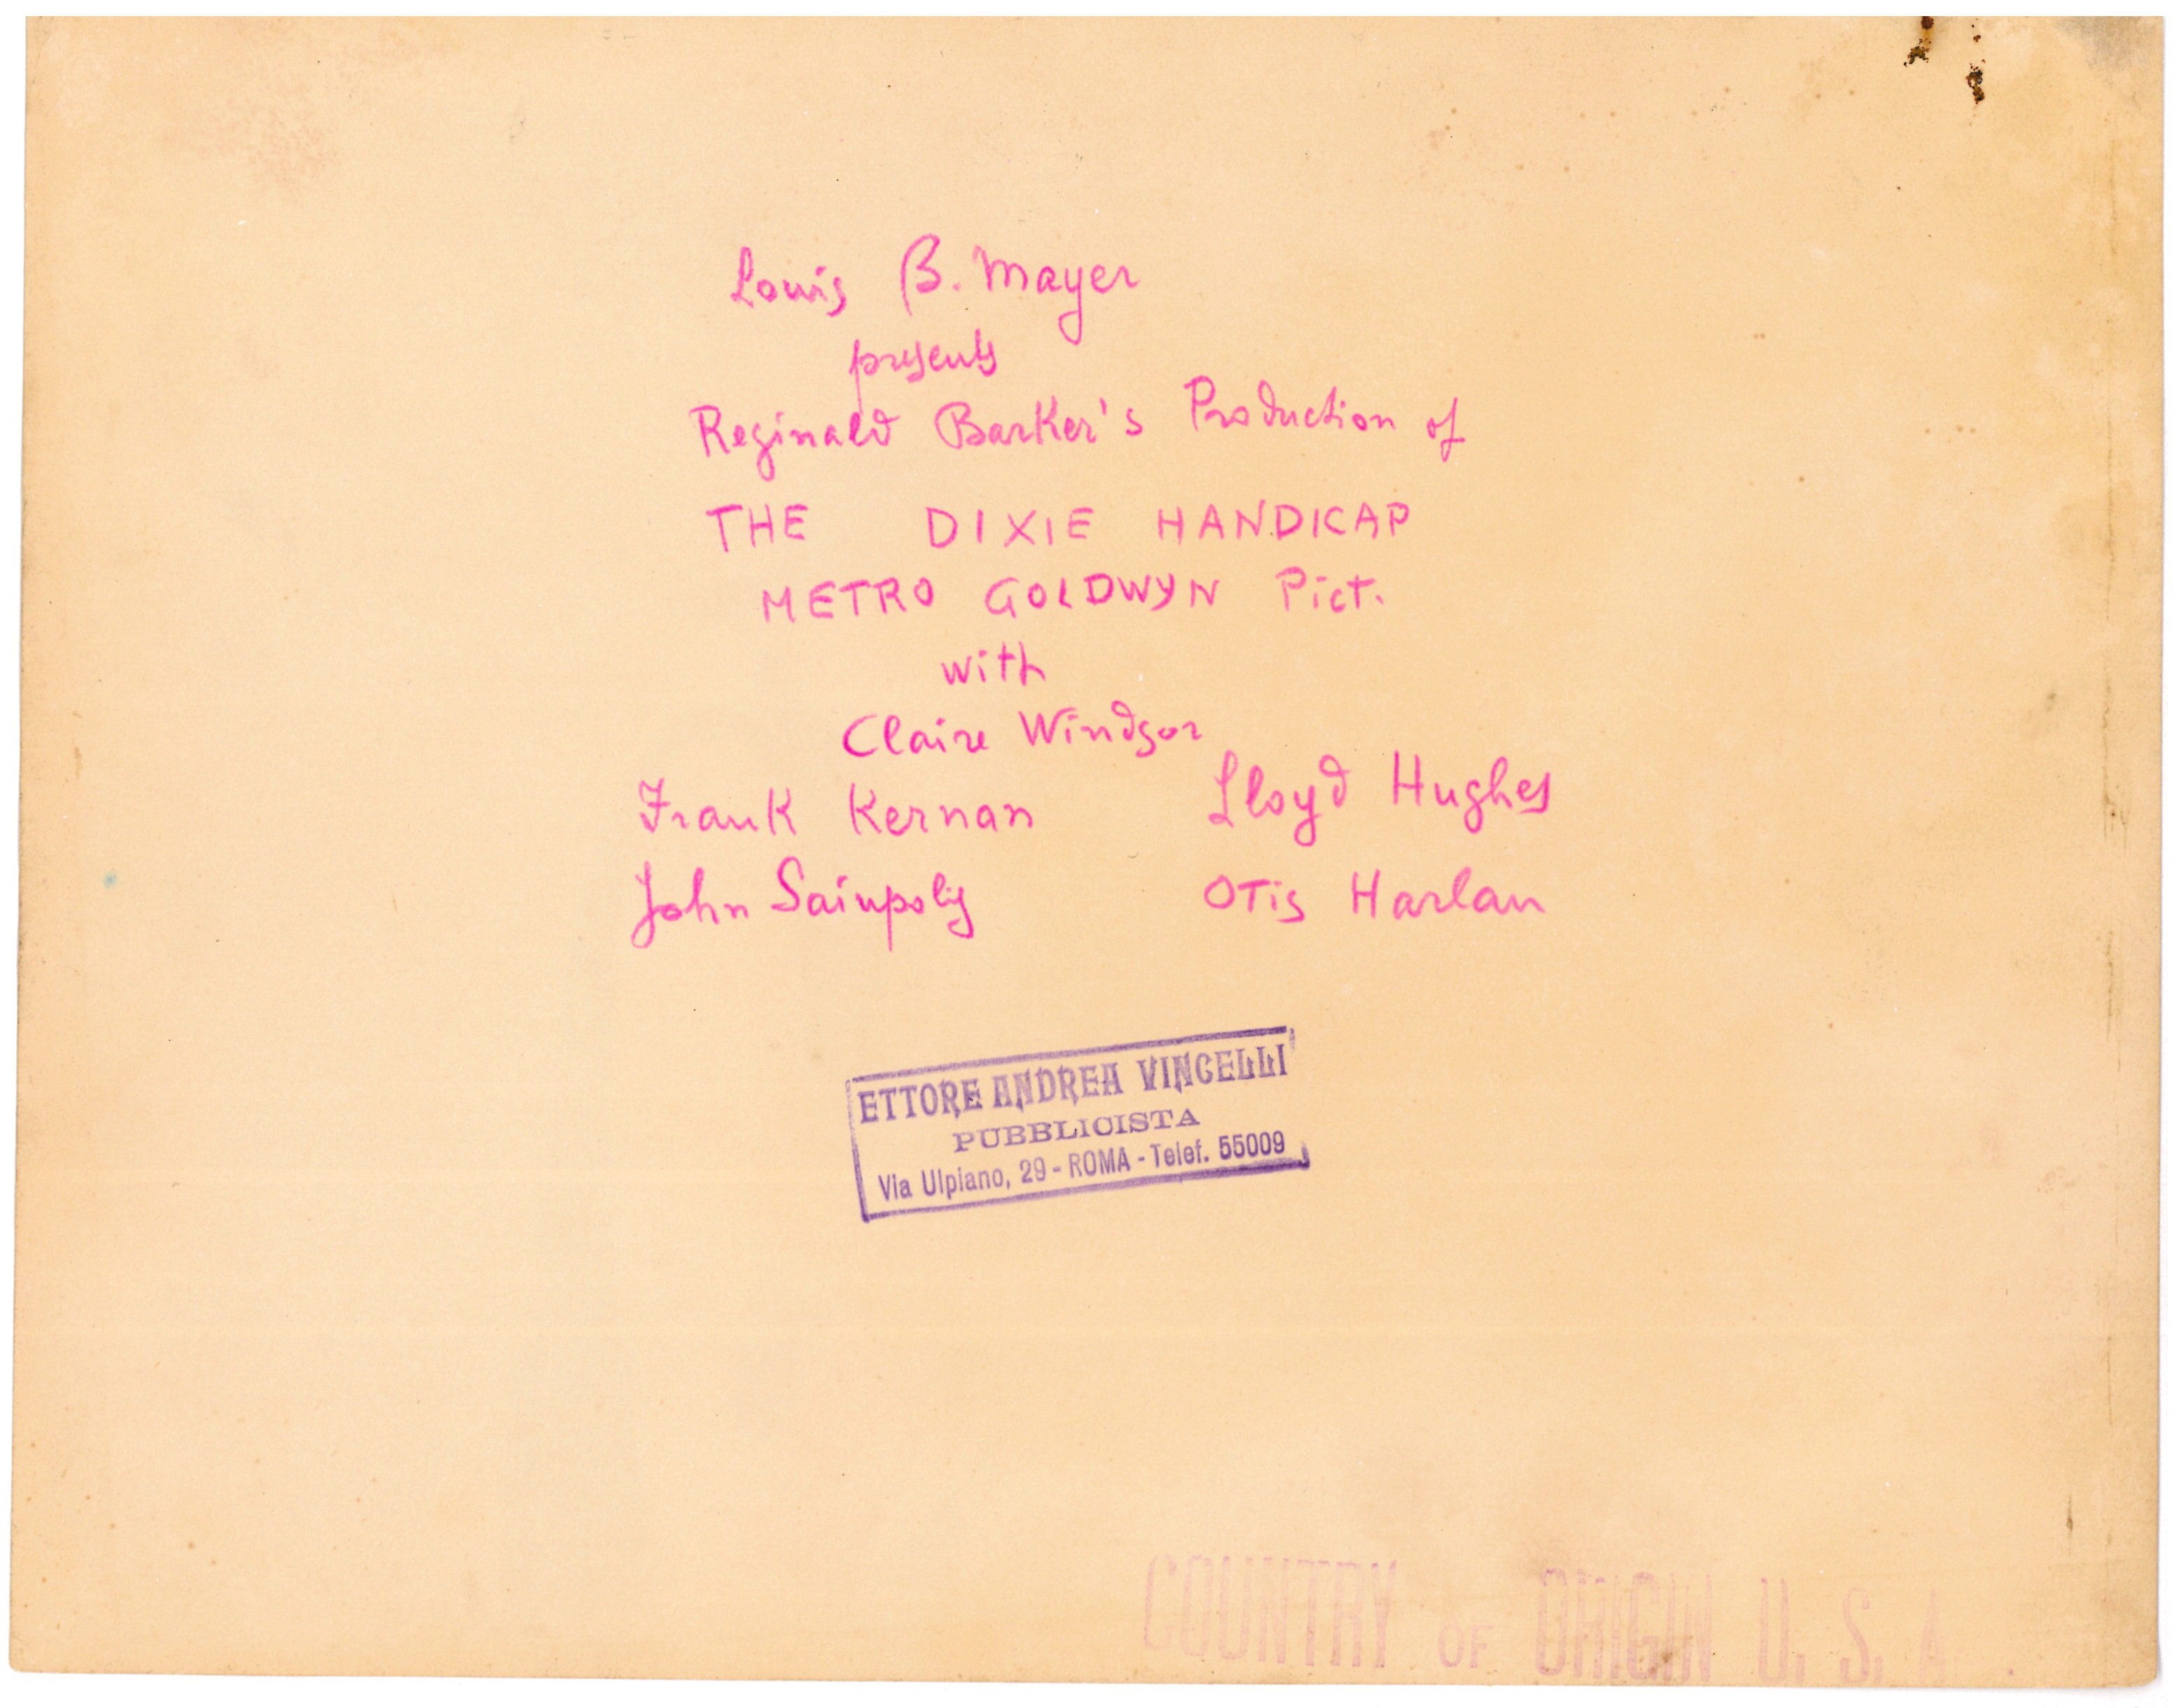 Louis B. Mayer
presents
Reginald Barker's Production of
THE DIXIE HANDICAP
METRO GOLDWYN Pict.
with
Claire Windsor
Frank Kernan Lloyd Hughes
John Sainpolis Otis Harlan
ETTORE ANDREA VINCELLI
PUBBLICISTA
Via Ulpiano, 29 - ROMA - Telef. 55009
COUNTRY OF ORIGIN U. S. A